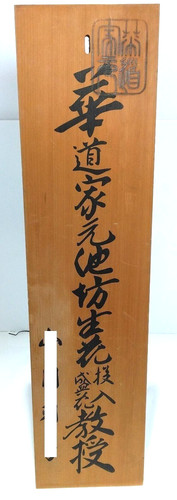 華道家元池坊生花投入盛花教授